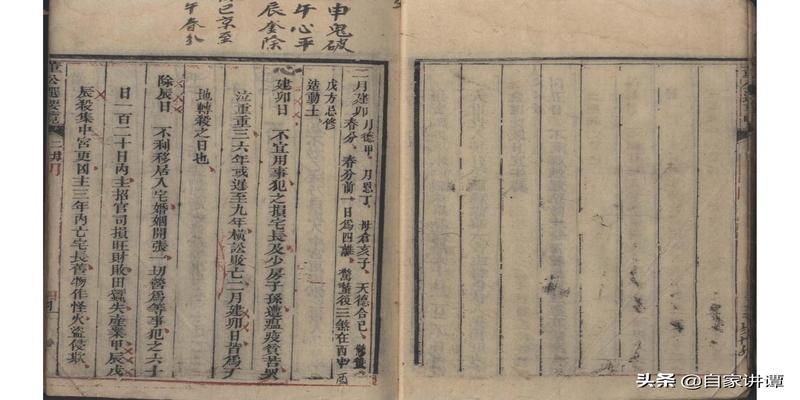 申鬼破
午心平
辰奎除
巳京至
午春分
二月建卯
月德甲 月恩丁 母倉亥子 天德合巳 驚蟄
春分 春分前一日爲四離 驚蟄後三煞在酉申
戊方忌修
造動土
建卯日 不宜用事犯之損宅長及少房子孫遭瘟疫貧苦哭
泣重重三六年或遲至九年橫訟敗亡二月建卯日皆爲天
地轉殺之日也
除辰日 不利移居入宅婚姻開張一切營爲等事犯之六十
日一百二十日內主招官司損旺財敗田蠶失產業甲辰戊
辰殺集中宮更凶主三年內亡宅長舊物作怪火盜侵欺
董公選要覽
二 卯月
头条 @自家讲谭